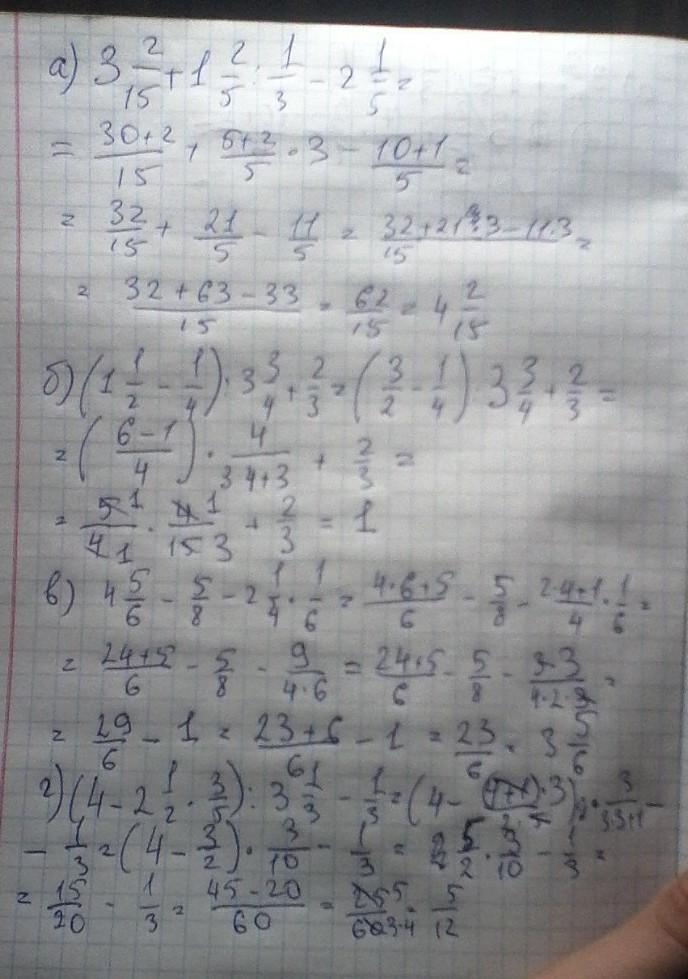 а) 3 2/15 + 1 2/5 : 1/3 - 2 1/5 =
= (30+2)/15 + (5+2)/5 · 3 - (10+1)/5 =
= 32/15 + 21/5 - 11/5 = (32+21·3-11·3)/15 =
= (32+63-33)/15 = 62/15 = 4 2/15
б) (1 1/2 - 1/4) · 3 3/4 + 2/3 = (3/2 - 1/4) · 3 3/4 + 2/3 =
= ((6-1)/4) · 4/(3 4+3) + 2/3 =
= 5 1/4 1 · 4 1/15 3 + 2/3 = 1
в) 4 5/6 - 5/8 - 2 1/4 · 1/6 = (4·6+5)/6 - 5/8 - (2·4+1)/4 · 1/6 =
= (24+5)/6 - 5/8 - 9/(4·6) = (24+5)/6 - 5/8 - (3·3)/(4·2·3) =
= 29/6 - 1 = (23+6)/6 - 1 = 23/6 = 3 5/6
г) (4 - 2 1/2 · 3/5) : 3 1/3 - 1/3 = (4 - (4+1)·3) · 3/(3·3+1) -
- 1/3 = (4 - 3/2) · 3/10 - 1/3 = 5/2 · 3/10 - 1/3 =
= 15/20 - 1/3 = (45-20)/60 = 25 5/60 3·4 = 5/12